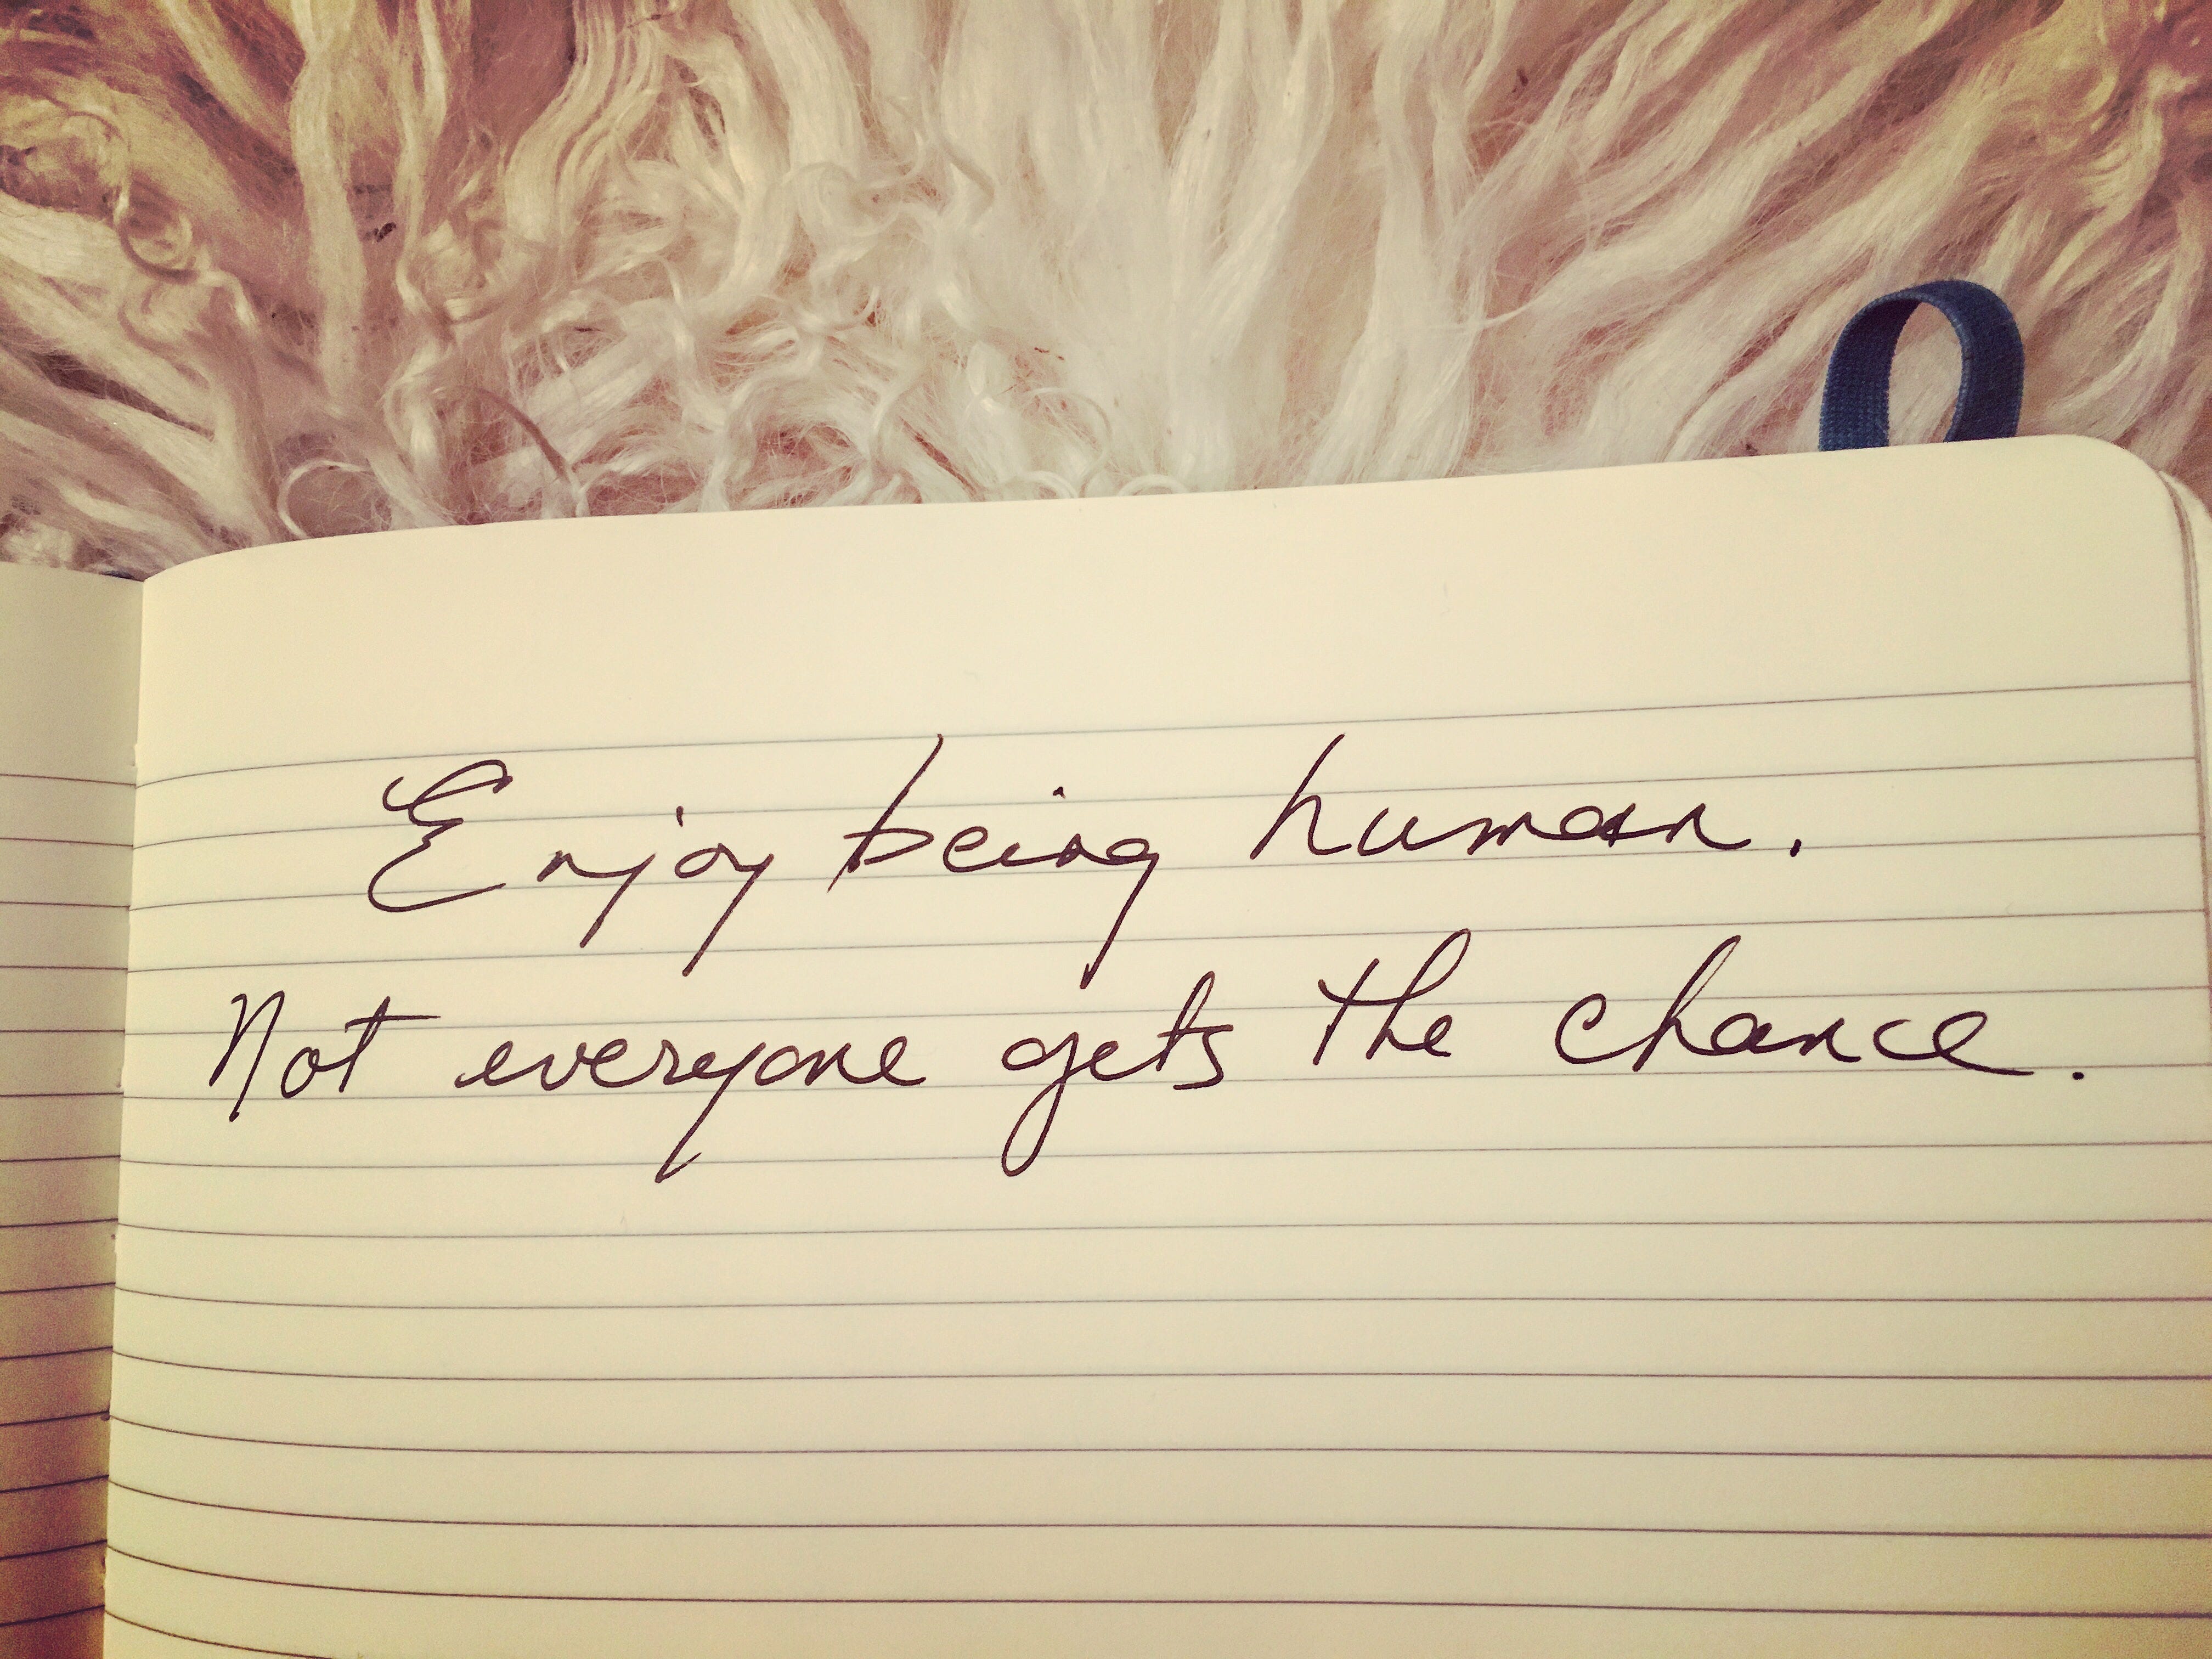 Enjoy being human.
Not everyone gets the chance.